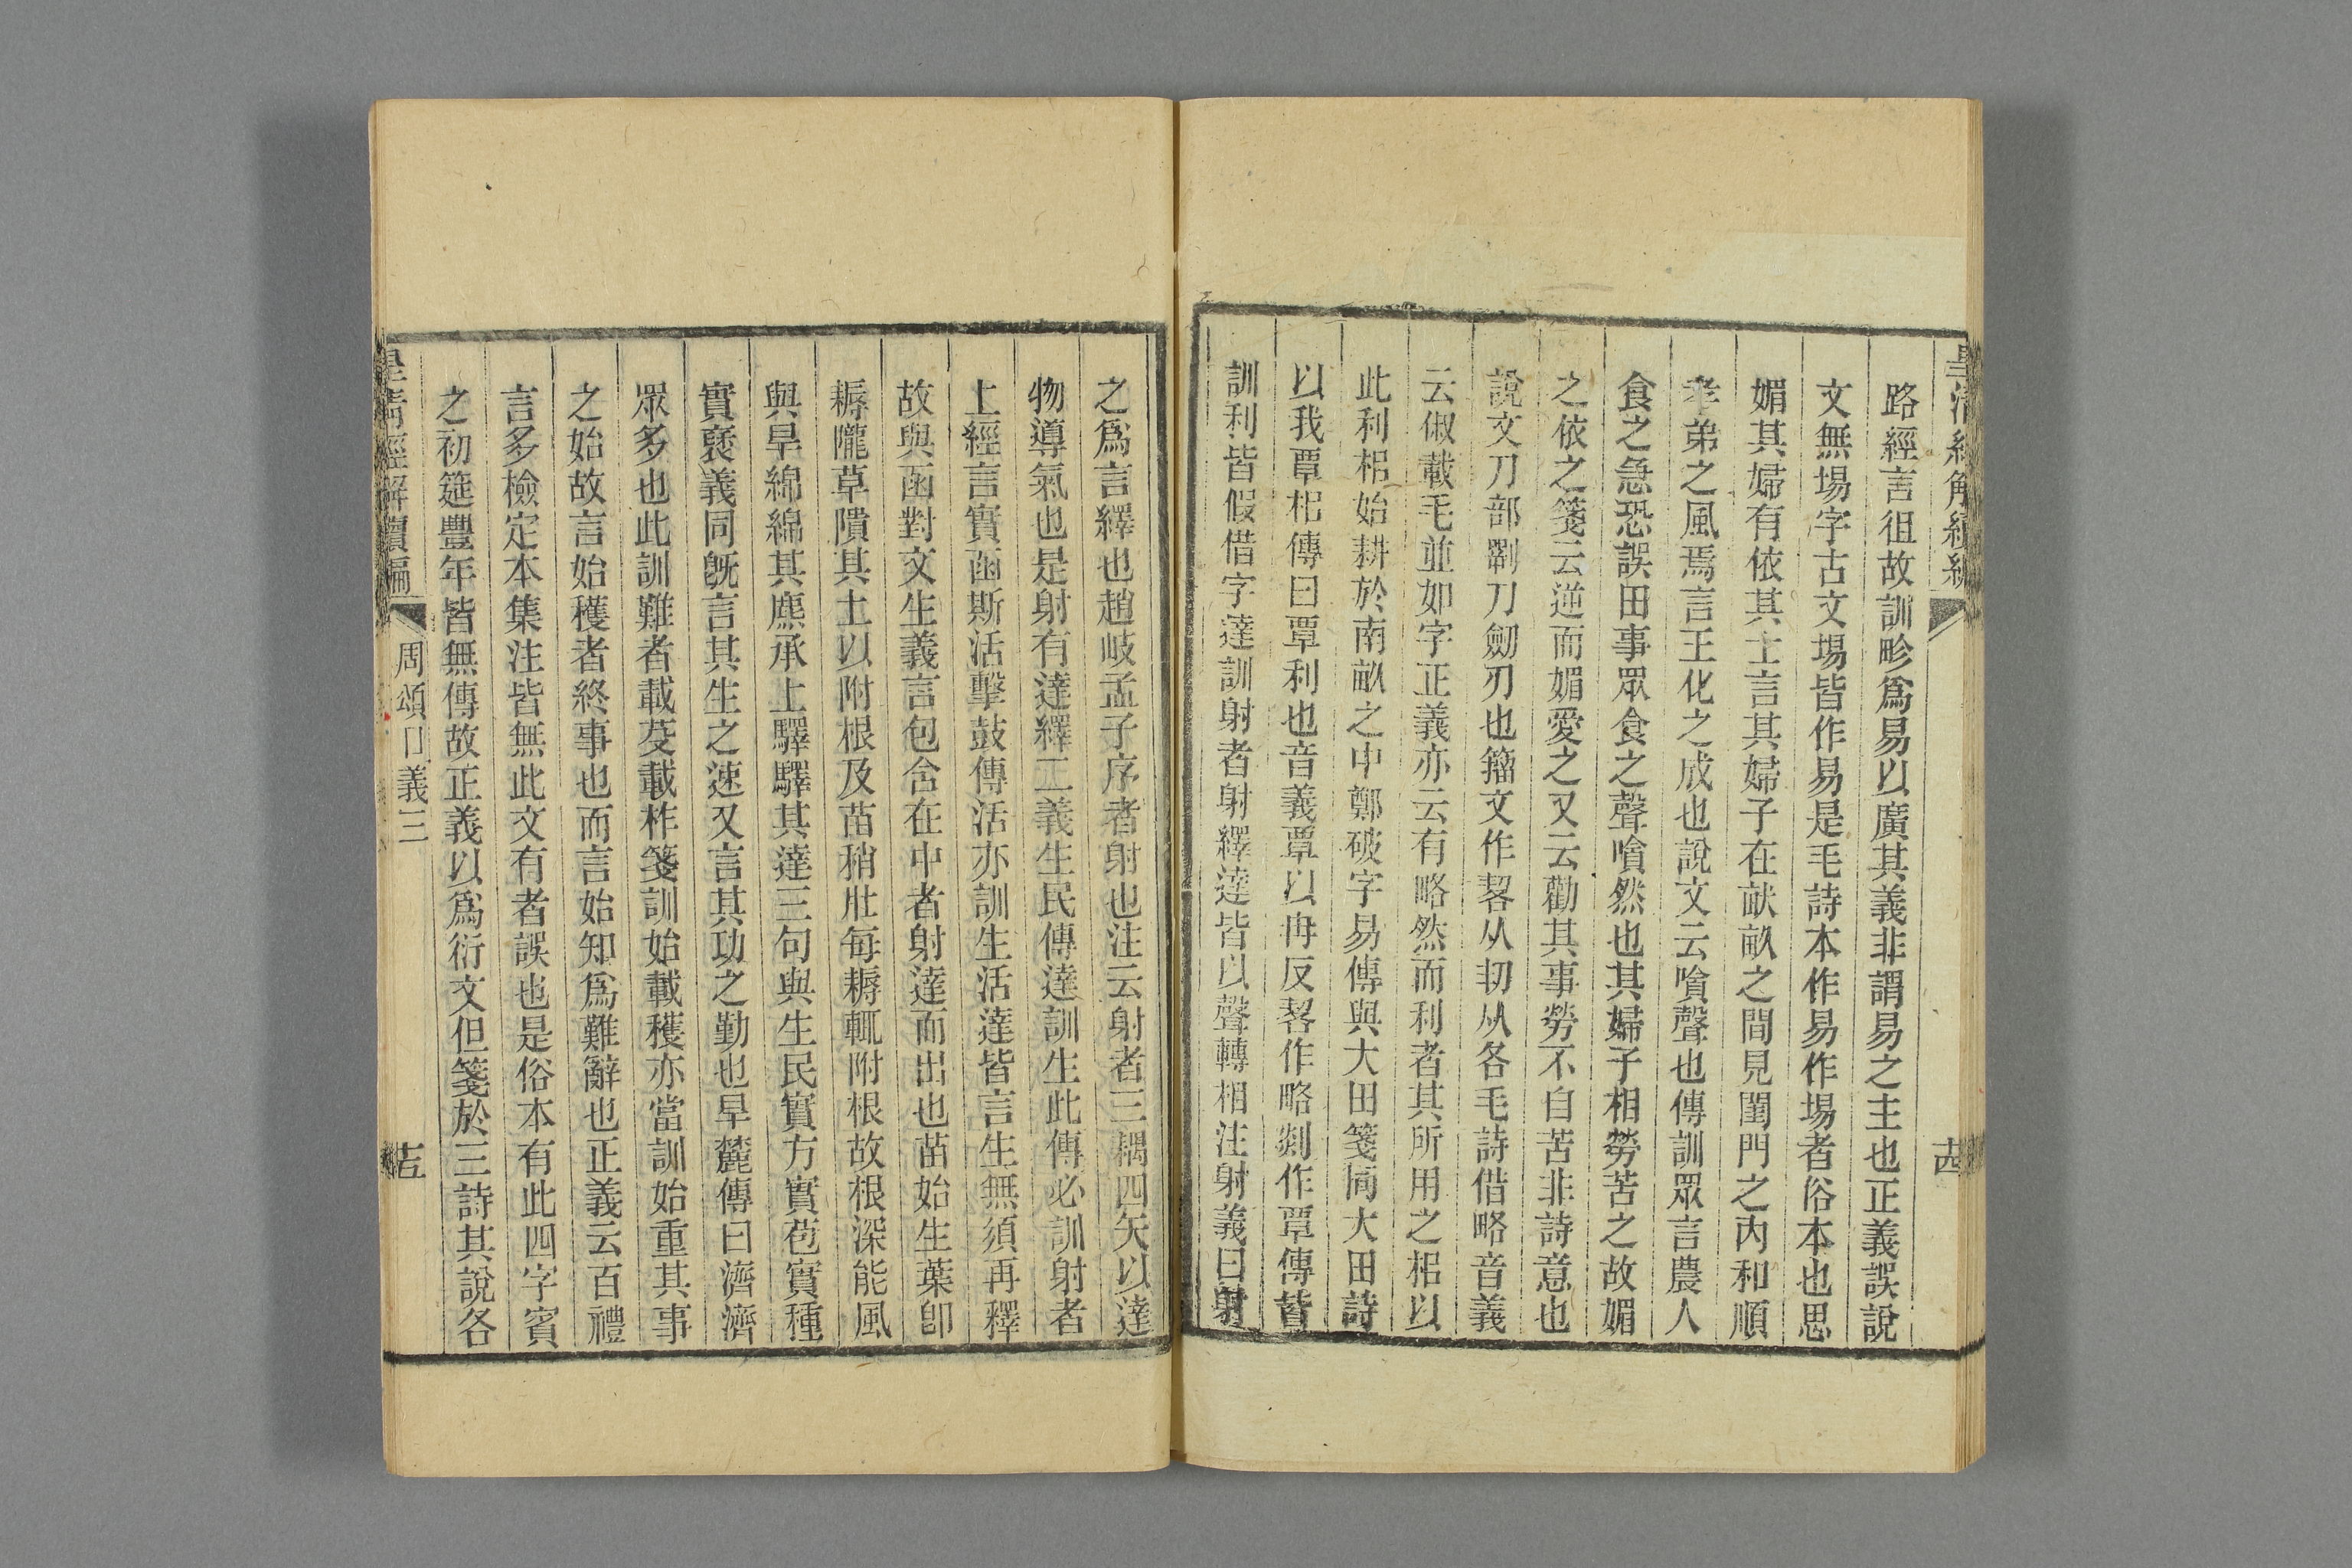 皇清經解續編
十四
路經言徂故訓畛爲易以廣其義非謂易之主也正義誤說
文無場字古文場皆作易是毛詩本作易作場者俗本也思
媚其婦有依其士言其婦子在畎畝之間見閨門之內和順
孝弟之風焉言王化之成也說文云噲聲也傳訓眾言農人
食之急恐誤田事眾食之聲噲然也其婦子相勞苦之故媚
之依之箋云逆而媚愛之又云勸其事勞不自苦非詩意也
說文刀部劉刀劒刃也籀文作㓷从㓞从各毛詩借略音義
云俶載毛並如字正義亦云有略然而利者其所用之耜以
此利耜始耕於南畝之中鄭破字易傳與大田箋同大田詩
以我覃耜傳曰覃利也音義覃以冉反㓷作略剡作覃傳皆
訓利皆假借字達訓射者射繹達皆以聲轉相注射義曰射
之爲言繹也趙岐孟子序者射也注云射者三耦四矢以達
物導氣也是射有達繹二義生民傳達訓生此傳必訓射者
上經言實函斯活擊鼓傳活亦訓生活達皆言生無須再釋
故與函對文生義言包含在中者射達而出也苗始生葉卽
耨隴草隤其土以附根及苗稍壯每耨輒附根故根深能風
與旱綿綿其麃承上驛驛其達三句與生民實方實苞實種
實褎義同旣言其生之速又言其功之勤也旱麓傳曰濟濟
眾多也此訓難者載芟載柞箋訓始載穫亦當訓始重其事
之始故言始穫者終事也而言始知爲難辭也正義云百禮
言多檢定本集注皆無此文有者誤也是俗本有此四字賓
之初筵豐年皆無傳故正義以爲衍文但箋於三詩其說各
皇清經解續編
周頌口義三
十五